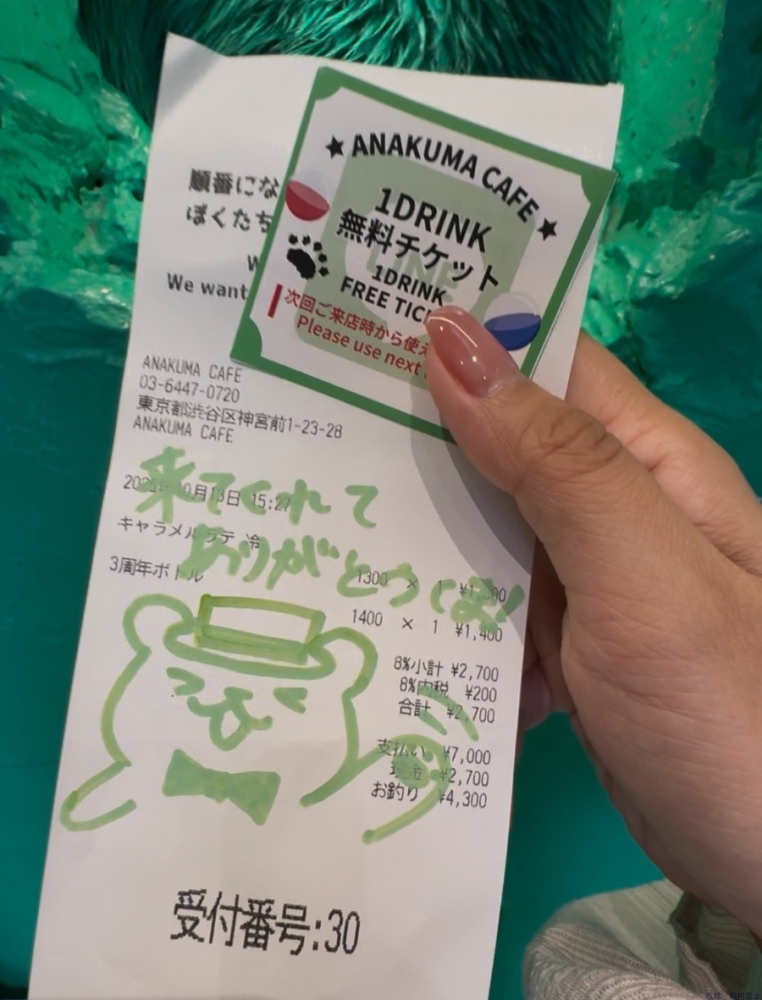 順番にな
ぼくたち
W
We want
★ ANAKUMA CAFE ★
1DRINK
無料チケット
1DRINK
FREE TIC
次回ご来店時から使え
Please use next
ANAKUMA CAFE
03-6447-0720
東京都渋谷区神宮前1-23-28
ANAKUMA CAFE
10月13日 15:27
来てくれて
ありがとうくま!
キャラメルラテ 冷
1300 × 1 ¥1,300
3周年ボトル
1400 × 1 ¥1,400
8%小計 ¥2,700
8%内税 ¥200
合計 ¥2,700
支払い ¥7,000
現金 ¥2,700
お釣り ¥4,300
受付番号:30